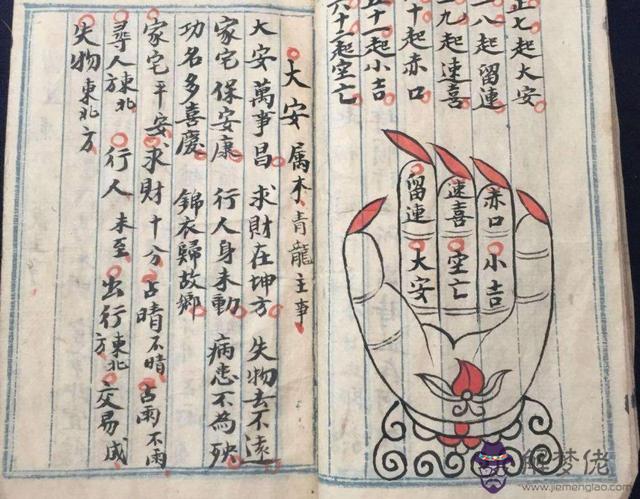 正七起大安
八起留連
九起速喜
十起赤口
五十一起小吉
六十二起空亡
赤口 小吉
速喜 空亡
留連 大安
大安 属木青龍主事
大安萬事昌 求財在坤方 失物去不遠
家宅保安康 行人身未動 病患不為殃
功名多喜慶 錦衣歸故鄉
家宅平安求財十分占晴不晴占雨不雨
尋人東北方 行人未至 出行東北方 交易成
失物東北方
解梦佬
www.jiemenglao.com